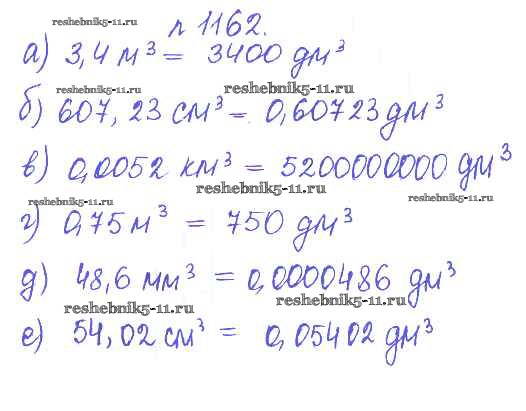 reshebnik5-11.ru
л 1162.
а) 3,4 м³ = 3400 дм³
reshebnik5-11.ru reshebnik5-11.ru
б) 607,23 см³ = 0,60723 дм³
в) 0,0052 км³ = 5200000000 дм³
reshebnik5-11.ru
reshebnik5-11.ru reshebnik5-11.ru
г) 0,75 м³ = 750 дм³
д) 48,6 мм³ = 0,0000486 дм³
reshebnik5-11.ru reshebnik5-11.ru
е) 54,02 см³ = 0,05402 дм³